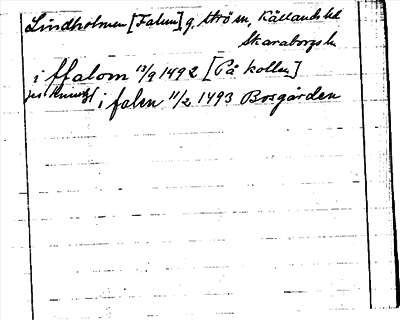 Lindholmen [Falun] g. Ström, Kållands hd
Skaraborgs l.
i ffalom 13/9 1492 [På kollen]
i falen 11/2 1493 Bosgården